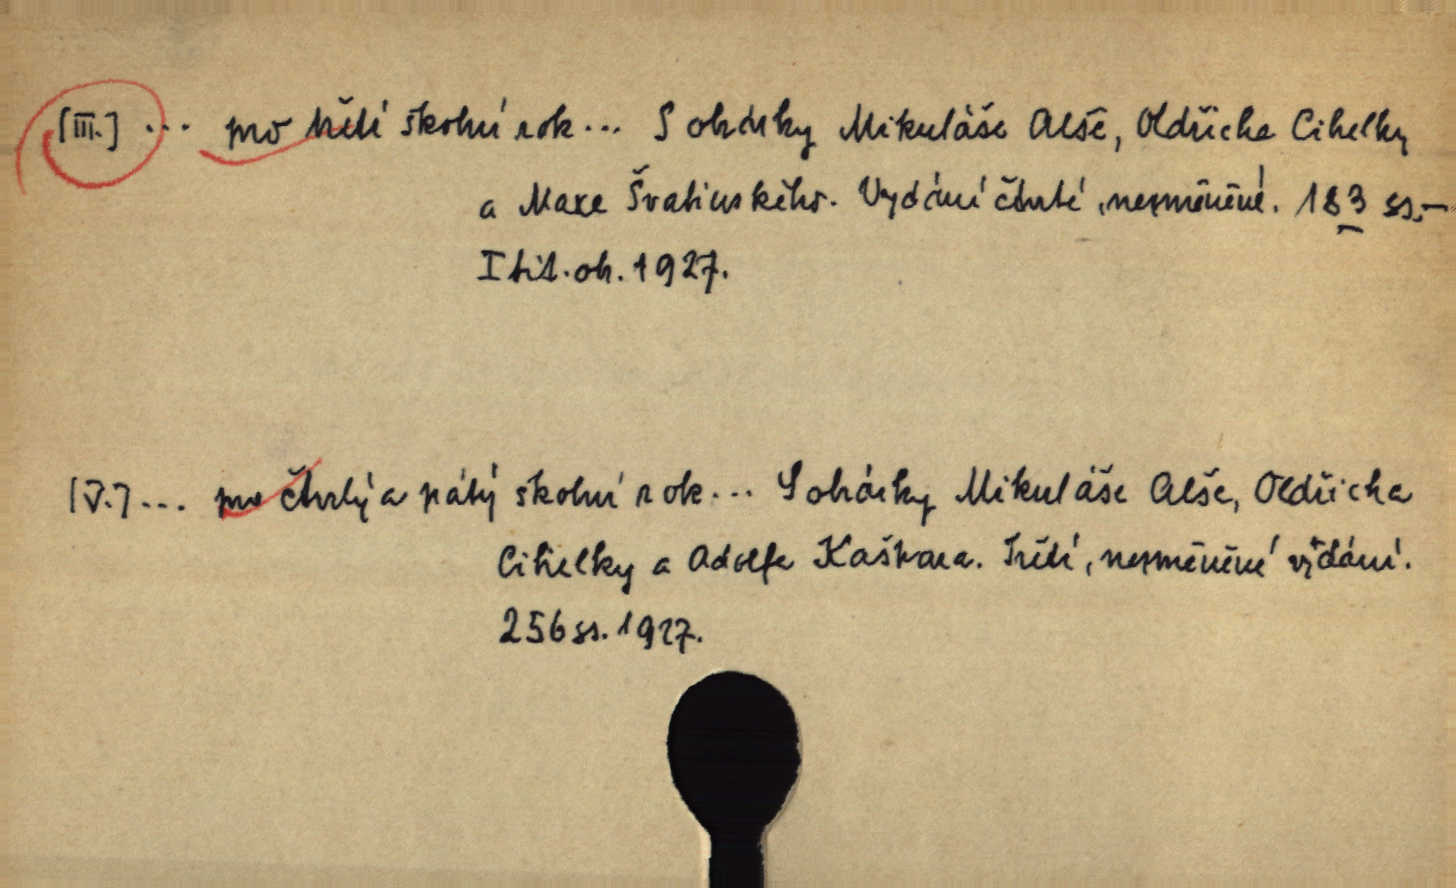 [III.] ... pro třetí školní rok... S obrázky Mikuláše Alše, Oldřicha Cihelky
a Maxe Švabinského. Vydání čtvrté, nezměněné. 183 ss.–
I tit. ob. 1927.
[V.] ... pro čtvrtý a pátý školní rok... S obrázky Mikuláše Alše, Oldřicha
Cihelky a Adolfa Kašpara. Třetí, nezměněné vydání.
256 ss. 1927.